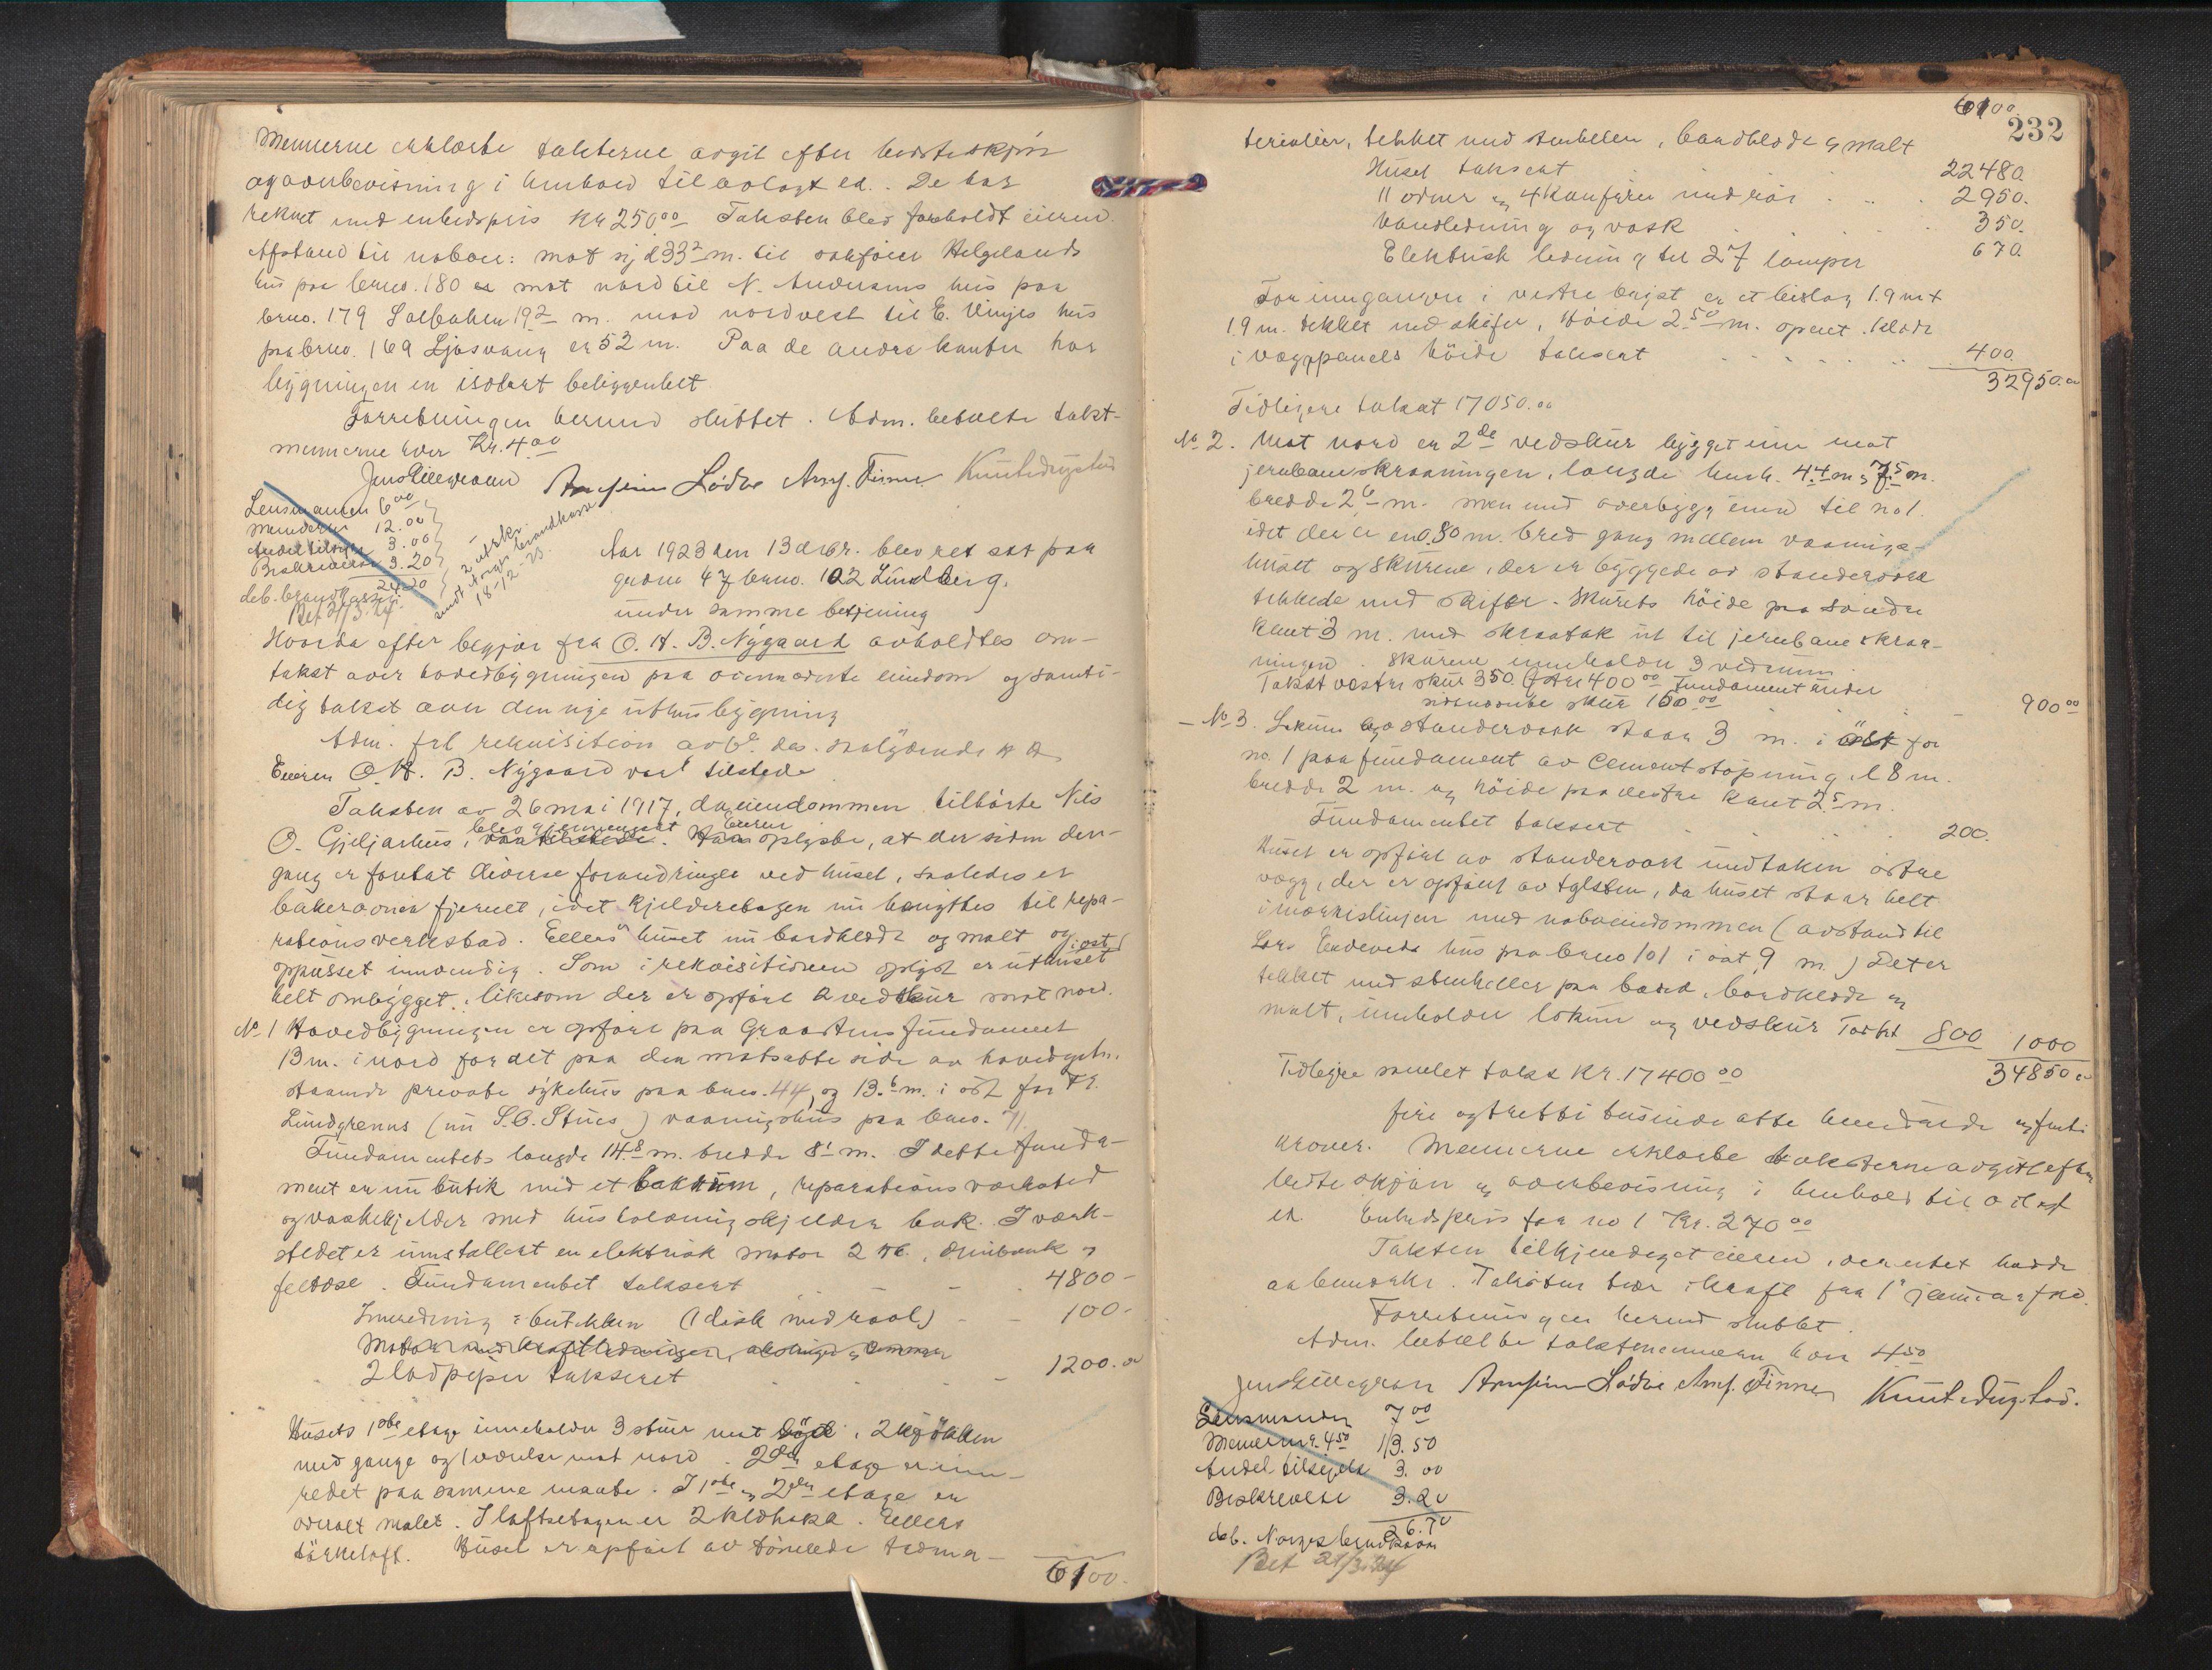 Mennerne erklærte taksterne avgit efter bedste skjøn
og overbevisning i henhold til avlagt ed. De har
reknet med enhedspris Kr 250.00 Taksten blev foreholdt eieren.
Afstand til naboer: mot syd 33² m. til sakfører Helgelands
hus paa brno. 180 mot nord til N. Andersens hus paa
brno. 179 Solbakken 19² m. mod nordvest til E. Vinjes hus
paa brno. 169 Ljosvang er 52 m. Paa de andre kanter har
bygningen en isolert beliggenhet.
Forretningen hermed sluttet. Adm. betalte takst-
mennerne hver Kr. 4.00
Jens Gillegraven Arnfinn Lödve Arnf. Finne Knut Dugstad
Lensmannen 6.00
Mennerne 12.00
Andel tilsigelse 3.00
Beskrivelse 3.20
24.20
deb. brandkassen
Bet 21/3. 24
2 utskr.
sendt Norges brandkasse
18-12-23.
Aar 1923 den 13 decbr. blev ret sat paa
gaarden 47 brno. 102 Lindberg.
under samme betjening
Hvorda efter begjær fra O. H. B. Nygaard avholdtes om-
takst over hovedbygningen paa ovennævnte eiendom og samti-
dig takst over den nye uthusbygning
Adm. frl rekvisition av 6. ds. saalydende
Eieren O. H. B. Nygaard var tilstede
Taksten av 26 mai 1917, da eiendommen tilhörte Nils
O. Gjeljarhus, blev gjennemgaat. Eieren oplyste, at der siden den-
gang er foretat diverse forandringer ved huset, saaledes er
bakerovnen fjernet, idet kjelderetagen nu benyttes til repa-
rationsverksted. Ellers er huset nu bordklædt og malt og
oppusset innvendig. Som i rekvisitionen oplyst er uthuset i øst
helt ombygget, likesom der er opført 2 vedskur mot nord.
No. 1 Hovedbygningen er opfört paa Graastens fundament
13 m. i nord for det paa den motsatte side av hovedgaten
staaende private sykehus paa brno. 44, og 13.6 m. i öst for Fr.
Lindgrens (nu S. O. Stues) vaaningshus paa brno. 71.
Fundamentets længde 14.8 m. bredde 8.1 m. I dette funda-
ment er nu butik med et bakrum, reparationsværksted
og vaskekjelder med husholdningskjelder bak. I værk-
stedet er innstallert en elektrisk motor 2 HK., dreiebænk og
feltesse. Fundamentet taksert 4800-
Innredning i butikken (1 disk med reol) 100-
Motor med kraftledninger
2 ladpiper taksert 1200.00
Husets 1ste etage inneholder 3 stuer mot syd, 2 kjökken
med gange og 1 værelse mot nord. 2den etage er inn-
redet paa samme maate. I 1ste og 2den etage er
overalt malet. I loftsetagen er 2 kleshoka. Ellers
törkeloft. Huset er opfört av tömrede tedma-
6100.
232
6100
terialier, tekket med stenheller, bordklædt og malt
Huset taksert 22480.
11 ovner og 4 komfyrer med rør 2950.
Vandledning og vask 350.
Elektrisk ledning til 27 lamper 670.
For inngangen i vestre bryst er et bislag 1.9 m x
1.9 m. tekket med skifer, höide 2.50 m. opent. klædt
i vægpanels höide taksert 400.
32950.00
Tidligere takst 17050.00
No. 2. Mot nord er 2de vedskur bygget inn mot
jernbaneskraaningen, længde hensh. 4.4 m og 7.5 m.
bredde 2.6 m. men med overbygg inn til no 1.
idet der er en 0.80 m. bred gang mellem vaanings-
huset og skurene, der er byggede av standerværk
tekkede med skifer. Skurets höide paa söndre
kant 3 m. med skraatak ut til jernbaneskraa-
ningen. Skurene inneholder 3 vedrum.
Takst vestre skur 350. östre 400.00 Fundament under
sistnævnte skur 150.00 900.00
No 3. Lokum av standerværk staar 3 m. i öst for
no. 1 paa fundament av cementstøpning, l 8 m.
bredde 2 m. og höide paa vestre kant 2.5 m.
Fundamentet taksert 200.
Huset er opfört av standerværk undtaken östre
vægg, der er opfört av tglsten, da huset staar helt
i mærkislinjen med naboeiendommen (avstand til
Lars Endeveds hus paa brno 101 i öst 9 m.) Det er
tekket med stenheller paa bord, bordklædt og
malt, inneholder lokum og vedskur Takst 800 1000
34850.00
Tidligere samlet takst Kr. 17400.00
fire og tretti tusinde otte hundrede og femti
kroner. Mennerne erklærte taksterne avgit efter
bedste skjøn og overbevisning i henhold til avlagt
ed. Enhedspris for no 1 Kr. 270.00
Taksten tilkjendegat eieren, der intet hadde
at bemerke. Taksten træ i kraft fra 1 januar f.k.
Forretningen hermed sluttet.
Adm. betalte takstmennerne hver 4.50
Jens Gillegraven Arnfinn Lödve Arnf. Finne Knut Dugstad.
Lensmannen 7.00
Mennerne a 4.50 13.50
Andel tilsigelse 3.00
Beskrivelse 3.20
26.70
deb. Norges brandkasse
Bet 21/3. 24